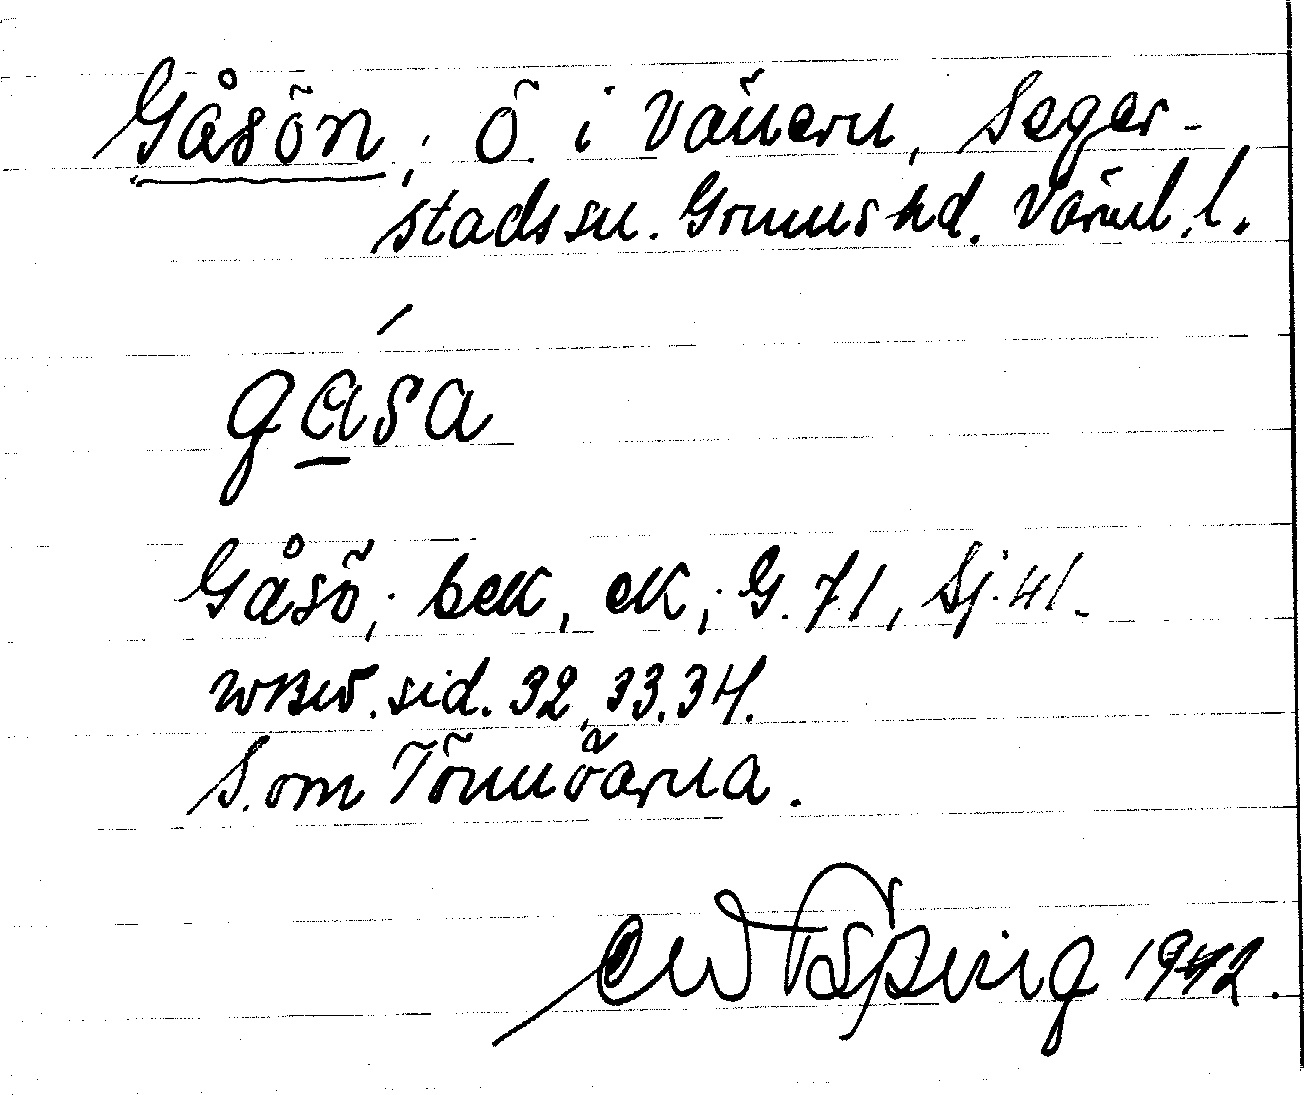 Gåsön; ö i Vänern, Seger-
stads sn. Grums hd. Värml. l.
gåsa
Gåsö; bek, ek; G. 71, Sj. 41.
WBW. sid. 32, 33. 34.
S. om Tönnöarna.
1942.